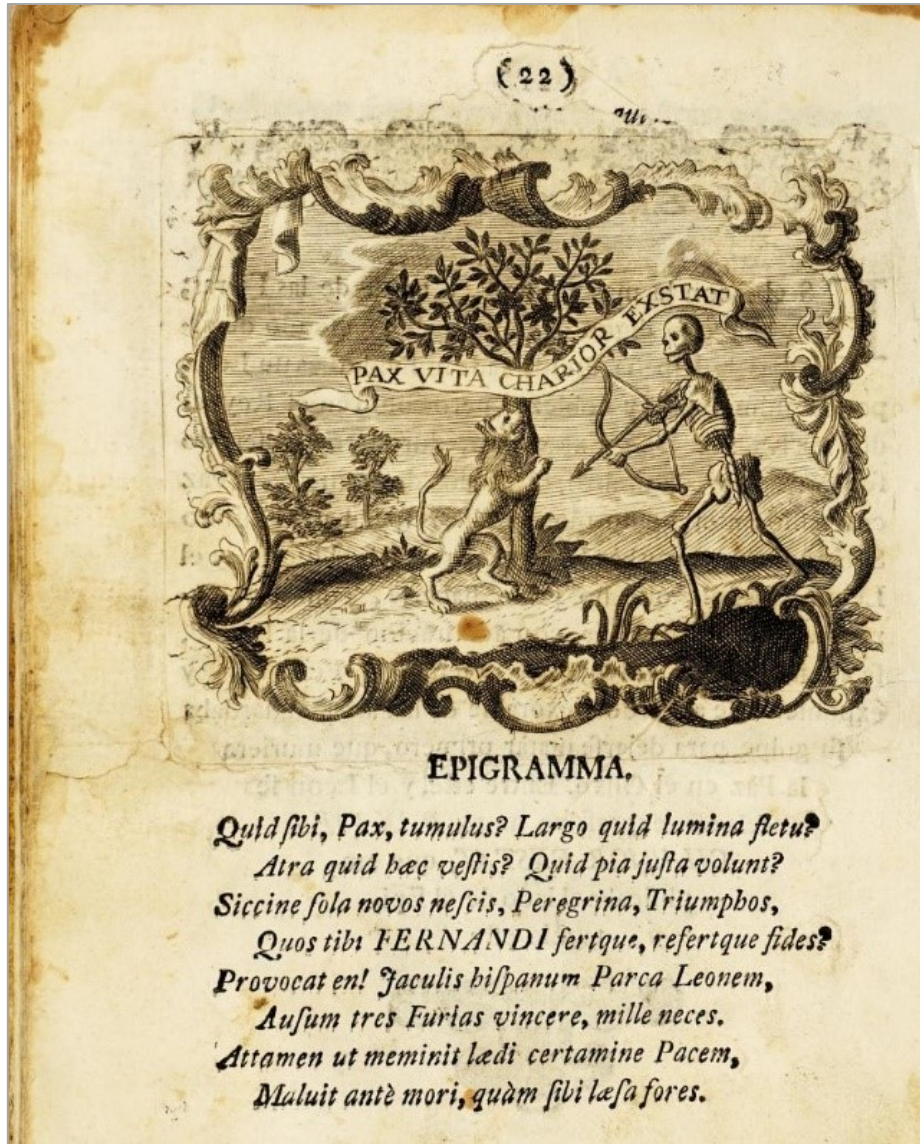 (22)
PAX VITA CHARIOR EXSTAT
EPIGRAMMA.
Quid ſibi, Pax, tumulus? Largo quid lumina fletu?
Atra quid hæc veſtis? Quid pia juſta volunt?
Siccine ſola novos neſcis, Peregrina, Triumphos,
Quos tibi FERNANDI fertque, refertque fides?
Provocat en! Jaculis hiſpanum Parca Leonem,
Auſum tres Furias vincere, mille neces.
Attamen ut meminit lædi certamine Pacem,
Maluit antè mori, quàm ſibi læſa fores.